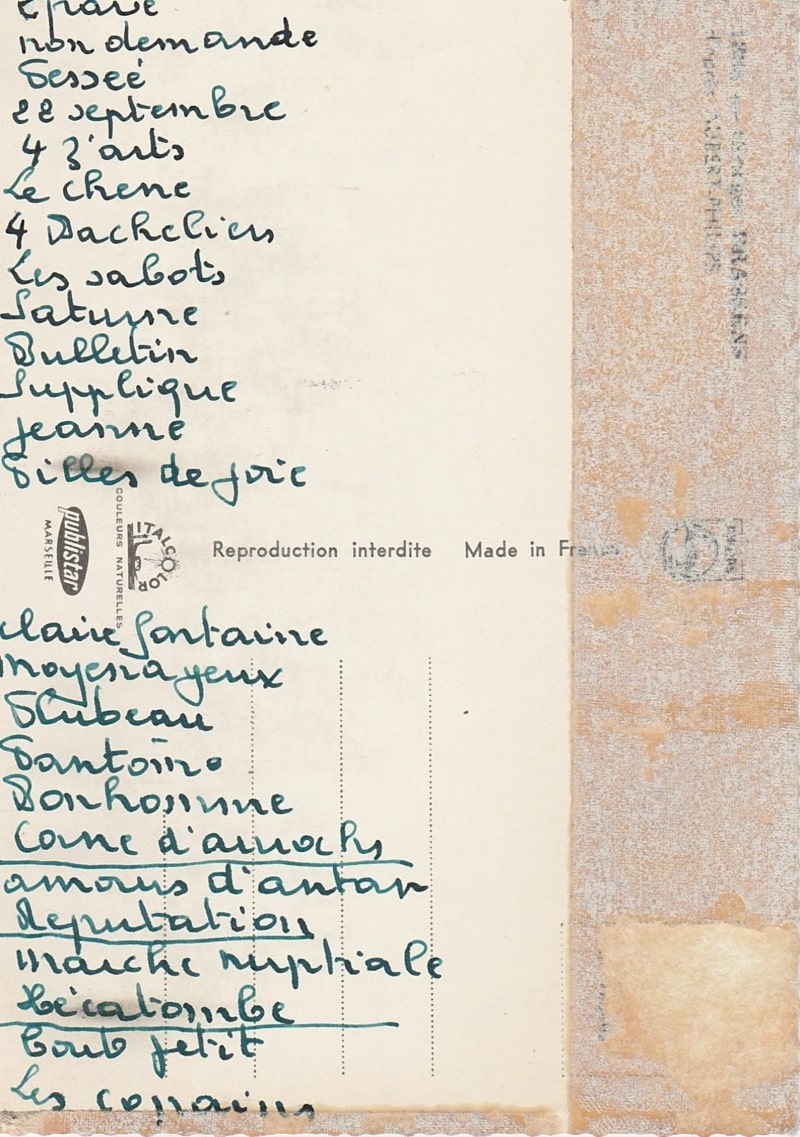 épave
non demande
Fesseé
22 septembre
4 z'arts
Le chene
4 Bacheliers
Les sabots
Saturne
Bulletin
Supplique
Jeanne
Filles de joie
publistar
MARSEILLE
COULEURS NATURELLES
ITALCOLOR
Reproduction interdite Made in France
claire fontaine
moyenayeux
Flubeau
Fantôme
Bonhomme
Corne d'aurochs
amours d'antan
Reputation
marche nuptiale
Hécatombe
tout petit
Les copains